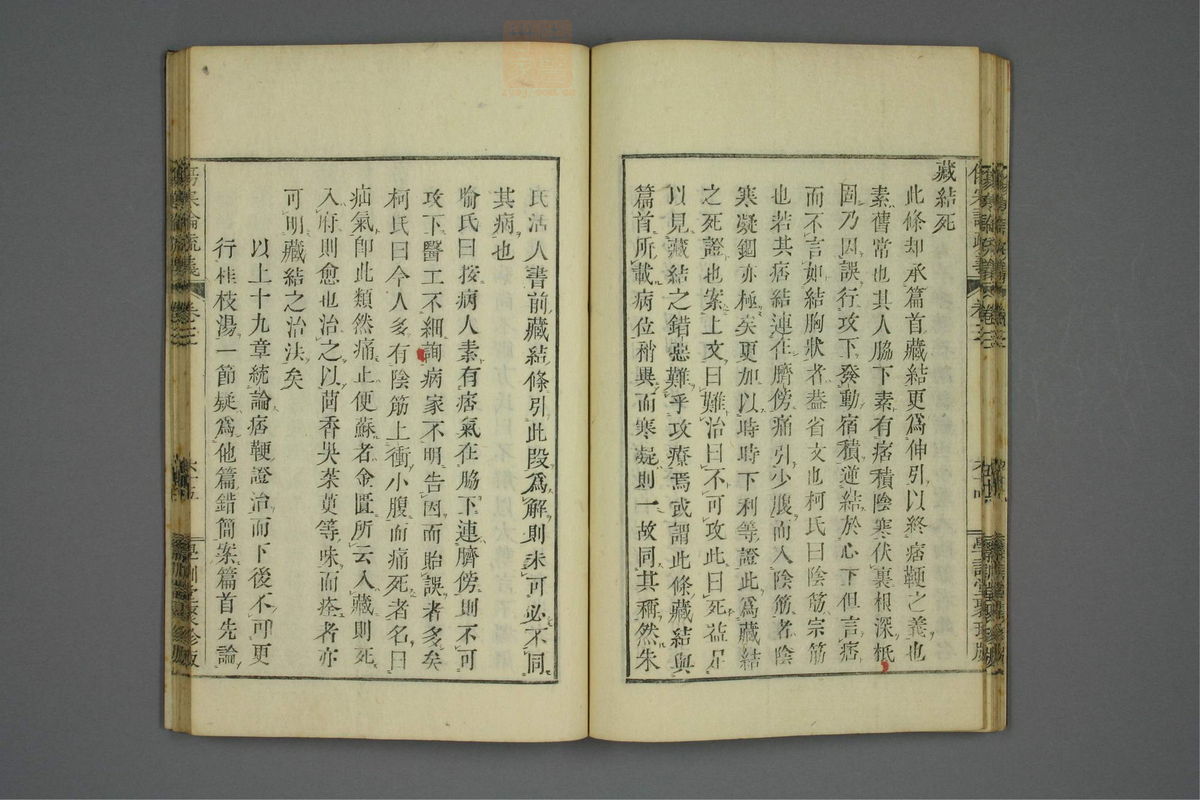 藏結死
此條却承篇首藏結更爲伸引以終痞鞕之義也
素舊常也其人脇下素有痞積陰寒伏裏根深柢
固乃因誤行攻下發動宿積逆結於心下但言痞
而不言如結胸狀者葢省文也柯氏曰陰筋宗筋
也若其痞結連在臍傍痛引少腹而入陰筋者陰
寒凝錮亦極矣更加以時時下利等證此爲藏結
之死證也案上文曰難治曰不可攻此曰死益足
以見藏結之錯惡難乎攻療焉或謂此條藏結與
篇首所載病位稍異而寒凝則一故同其稱然朱
氏活人書前藏結條引此段爲解則未可必不同
其病也
喻氏曰按病人素有痞氣在脇下連臍傍則不可
攻下醫工不細詢病家不明告因而貽誤者多矣
柯氏曰今人多有陰筋上衝小腹而痛死者名曰
疝氣卽此類然痛止便蘇者金匱所云入藏則死
入府則愈也治之以茴香吳茱萸等味而痊者亦
可明藏結之治法矣
以上十九章統論痞鞕證治而下後不可更
行桂枝湯一節疑爲他篇錯簡案篇首先論
傷寒論疏義
卷三
學訓堂聚珍版